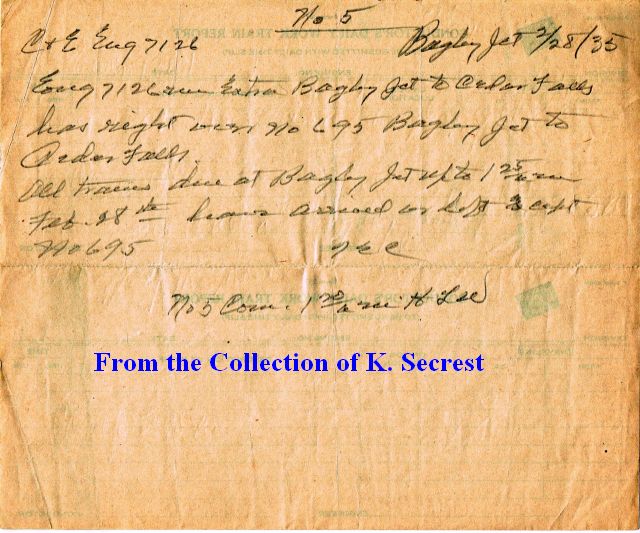 No 5
C & E Eng 7126 Bagley Jct 2/28/35
Eng 7126 run Extra Bagley Jct to Cedar Falls
has right over No 695 Bagley Jct to
Cedar Falls.
All trains due at Bagley Jct up to 1 25 am
Feb. 28th have arrived or left except
No 695
No 5 Com. 1 20 am H Lee
From the Collection of K. Secrest